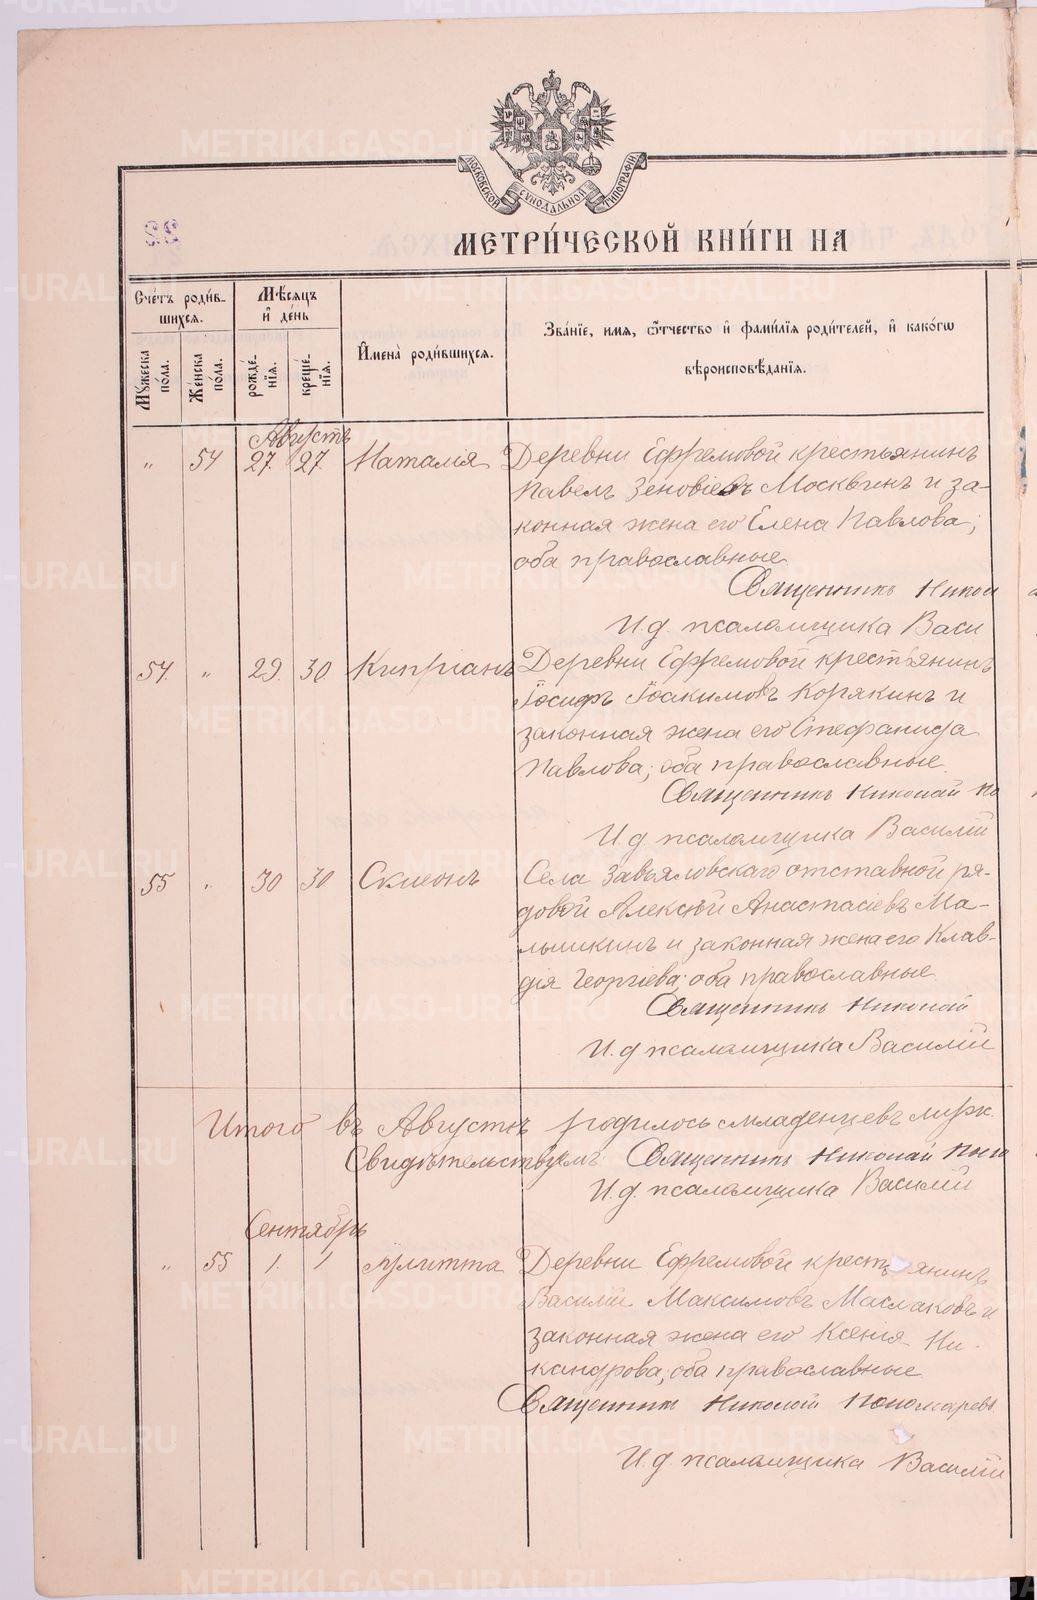 МОСКОВСКОЙ СѴНОДАЛЬНОЙ ТИПОГРАФІИ
МЕТРИ́ЧЕСКОЙ КНИ́ГИ НА
Сче́тъ роди́в-
шихся.
Мѣ́сяцъ
и҆ де́нь
И҆мена̀ роди́вшихся.
Зва́ніе, имя, ѻ҆́тчество и҆ фами́лія роди́телей, и҆ како́гѡ
вѣроисповѣ́данія.
Мꙋжеска
по́ла.
Же́нска
по́ла.
рожде́-
нія.
креще́-
нія.
Августъ
„ 54 27 27 Наталія Деревни Ефремовой крестьянинъ
Павелъ Зеновіевъ Москвинъ и за-
конная жена его Елена Павлова;
оба православные
Священникъ Никол
И.д. псаломщика Васи
54. „ 29. 30 Кипріанъ Деревни Ефремовой крестьянинъ
Іосифъ Іоакимовъ Корякинъ и
законная жена его Стефанида
Павлова; оба православные.
Священникъ Николай По
И.д. псаломщика Василій
55 „ 30 30 Симеонъ Села Завьяловскаго отставной ря-
довой Алексѣй Анастасіевъ Ма-
лышкинъ и законная жена его Клав-
дія Георгіева; оба православные.
Священникъ Николай
И.д псаломщика Василій
Итого въ Августѣ родилось младенцевъ мужк.
Свидѣтельствуемъ: Священникъ Николай Поно
И.д. псаломщика Василій
Сентябрь
„ 55 1. 1 Іулитта Деревни Ефремовой крестьянинъ
Василій Максимовъ Маслаковъ и
законная жена его Ксенія Ни-
кандрова; оба православные
Священникъ Николай Пономаревъ
И.д. псаломщика Василій
METRIKI.GASO-URAL.RU